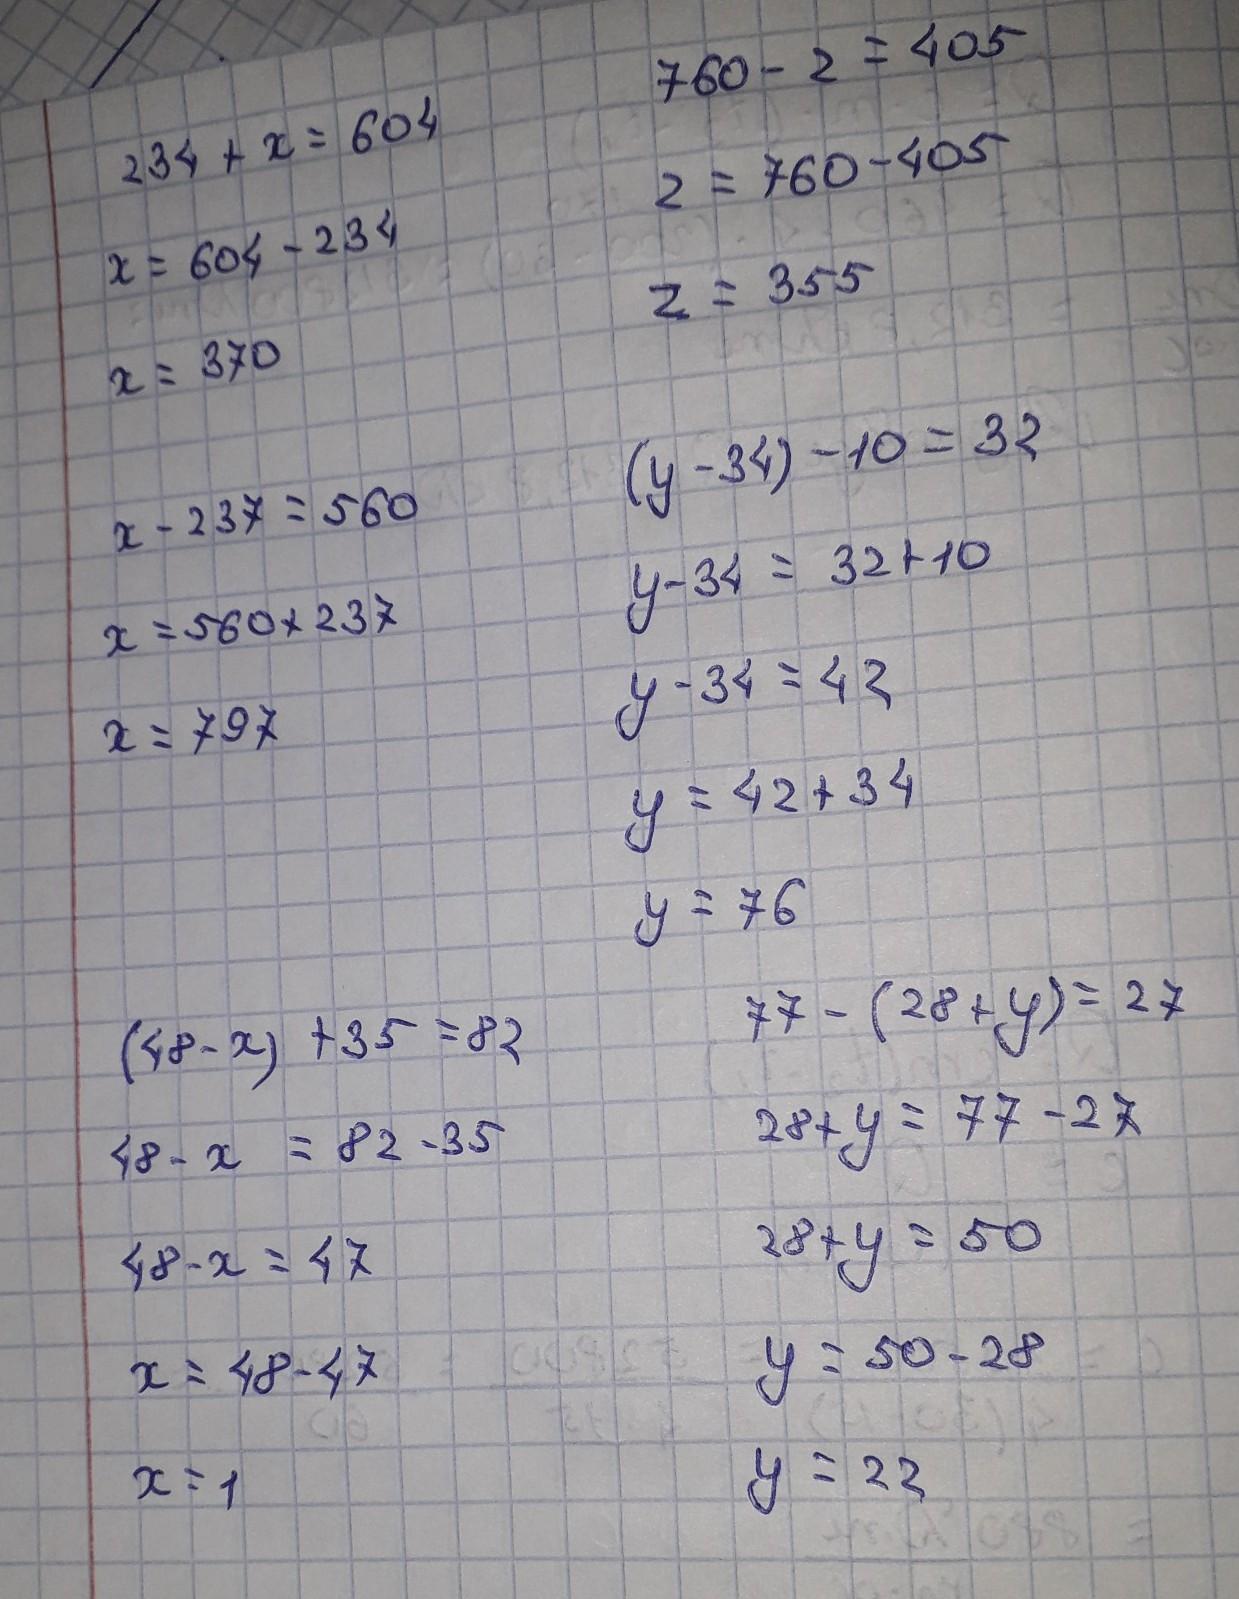 234 + x = 604
x = 604 - 234
x = 370
x - 237 = 560
x = 560 + 237
x = 797
760 - z = 405
z = 760 - 405
z = 355
(y - 34) - 10 = 32
y - 34 = 32 + 10
y - 34 = 42
y = 42 + 34
y = 76
(48 - x) + 35 = 82
48 - x = 82 - 35
48 - x = 47
x = 48 - 47
x = 1
77 - (28 + y) = 27
28 + y = 77 - 27
28 + y = 50
y = 50 - 28
y = 22